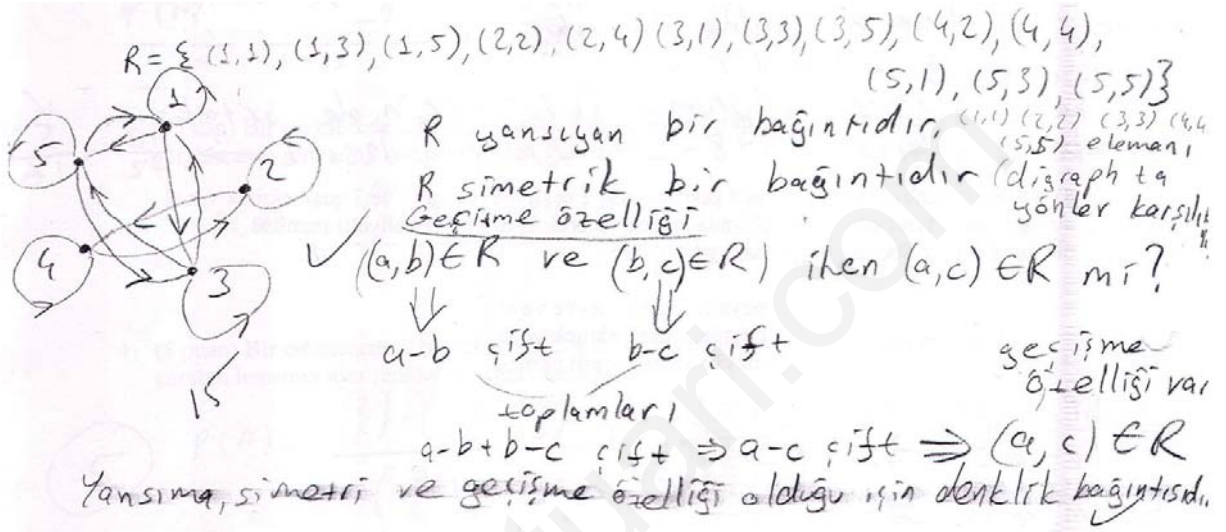 R = { (1,1), (1,3), (1,5), (2,2), (2,4) (3,1), (3,3), (3,5), (4,2), (4,4),
(5,1), (5,3), (5,5)}
1
5
2
4
3
15
R yansıyan bir bağıntıdır, (1,1) (2,2) (3,3) (4,4
(5,5) elemanı
R simetrik bir bağıntıdır (digraph ta
yönler karşılıklı
Geçişme özelliği
((a,b) ∈ R ve (b,c) ∈ R) iken (a,c) ∈ R mi?
⇓ ⇓
a-b çift b-c çift
geçişme
özelliği var
toplamları
a-b+b-c çift ⇒ a-c çift ⇒ (a,c) ∈ R
Yansıma, simetri ve geçişme özelliği olduğu için denklik bağıntısıdır
tuari.com